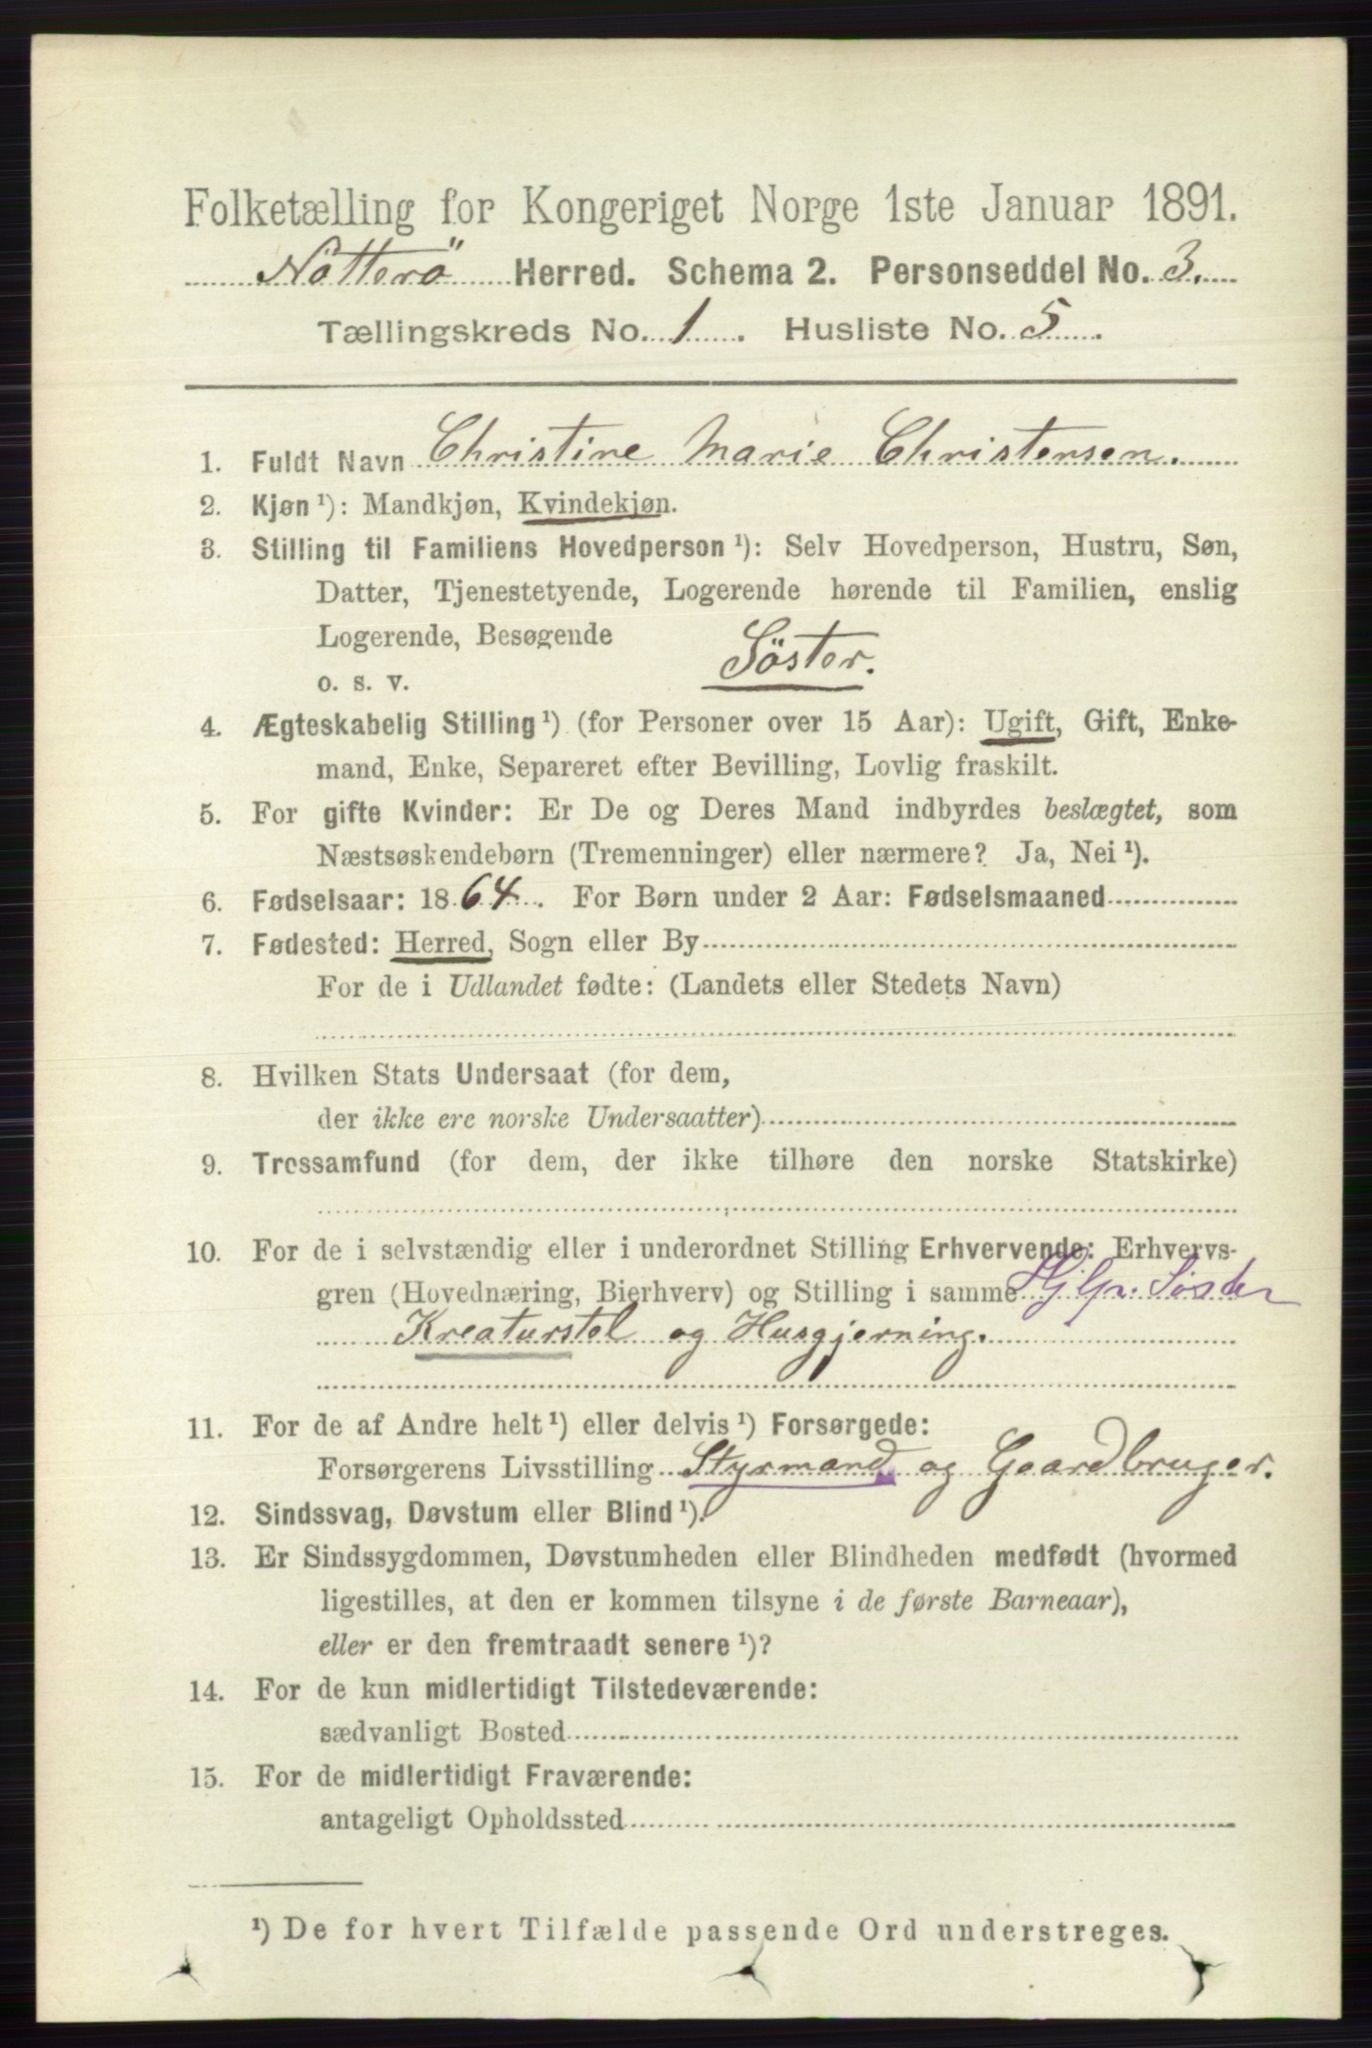 Folketælling for Kongeriget Norge 1ste Januar 1891.
Nötterö Herred. Schema 2. Personseddel No. 3.
Tællingskreds No. 1. Husliste No. 5.
1. Fuldt Navn Christine Marie Christensen.
2. Kjøn ¹): Mandkjøn, Kvindekjøn.
3. Stilling til Familiens Hovedperson ¹): Selv Hovedperson, Hustru, Søn,
Datter, Tjenestetyende, Logerende hørende til Familien, enslig
Logerende, Besøgende
o. s. v. Söster.
4. Ægteskabelig Stilling ¹) (for Personer over 15 Aar): Ugift, Gift, Enke-
mand, Enke, Separeret efter Bevilling, Lovlig fraskilt.
5. For gifte Kvinder: Er De og Deres Mand indbyrdes beslægtet, som
Næstsøskendebørn (Tremenninger) eller nærmere? Ja, Nei ¹).
6. Fødselsaar: 1864. For Børn under 2 Aar: Fødselsmaaned
7. Fødested: Herred, Sogn eller By
For de i Udlandet fødte: (Landets eller Stedets Navn)
8. Hvilken Stats Undersaat (for dem,
der ikke ere norske Undersaatter)
9. Trossamfund (for dem, der ikke tilhøre den norske Statskirke)
10. For de i selvstændig eller i underordnet Stilling Erhvervende: Erhvervs-
gren (Hovednæring, Bierhverv) og Stilling i samme Hjlpr. Søster
Kreaturstel og Husgjerning.
11. For de af Andre helt ¹) eller delvis ¹) Forsørgede:
Forsørgerens Livsstilling Styrmand og Gaardbruger.
12. Sindssvag, Døvstum eller Blind ¹).
13. Er Sindssygdommen, Døvstumheden eller Blindheden medfødt (hvormed
ligestilles, at den er kommen tilsyne i de første Barneaar),
eller er den fremtraadt senere ¹)?
14. For de kun midlertidigt Tilstedeværende:
sædvanligt Bosted
15. For de midlertidigt Fraværende:
antageligt Opholdssted
¹) De for hvert Tilfælde passende Ord understreges.